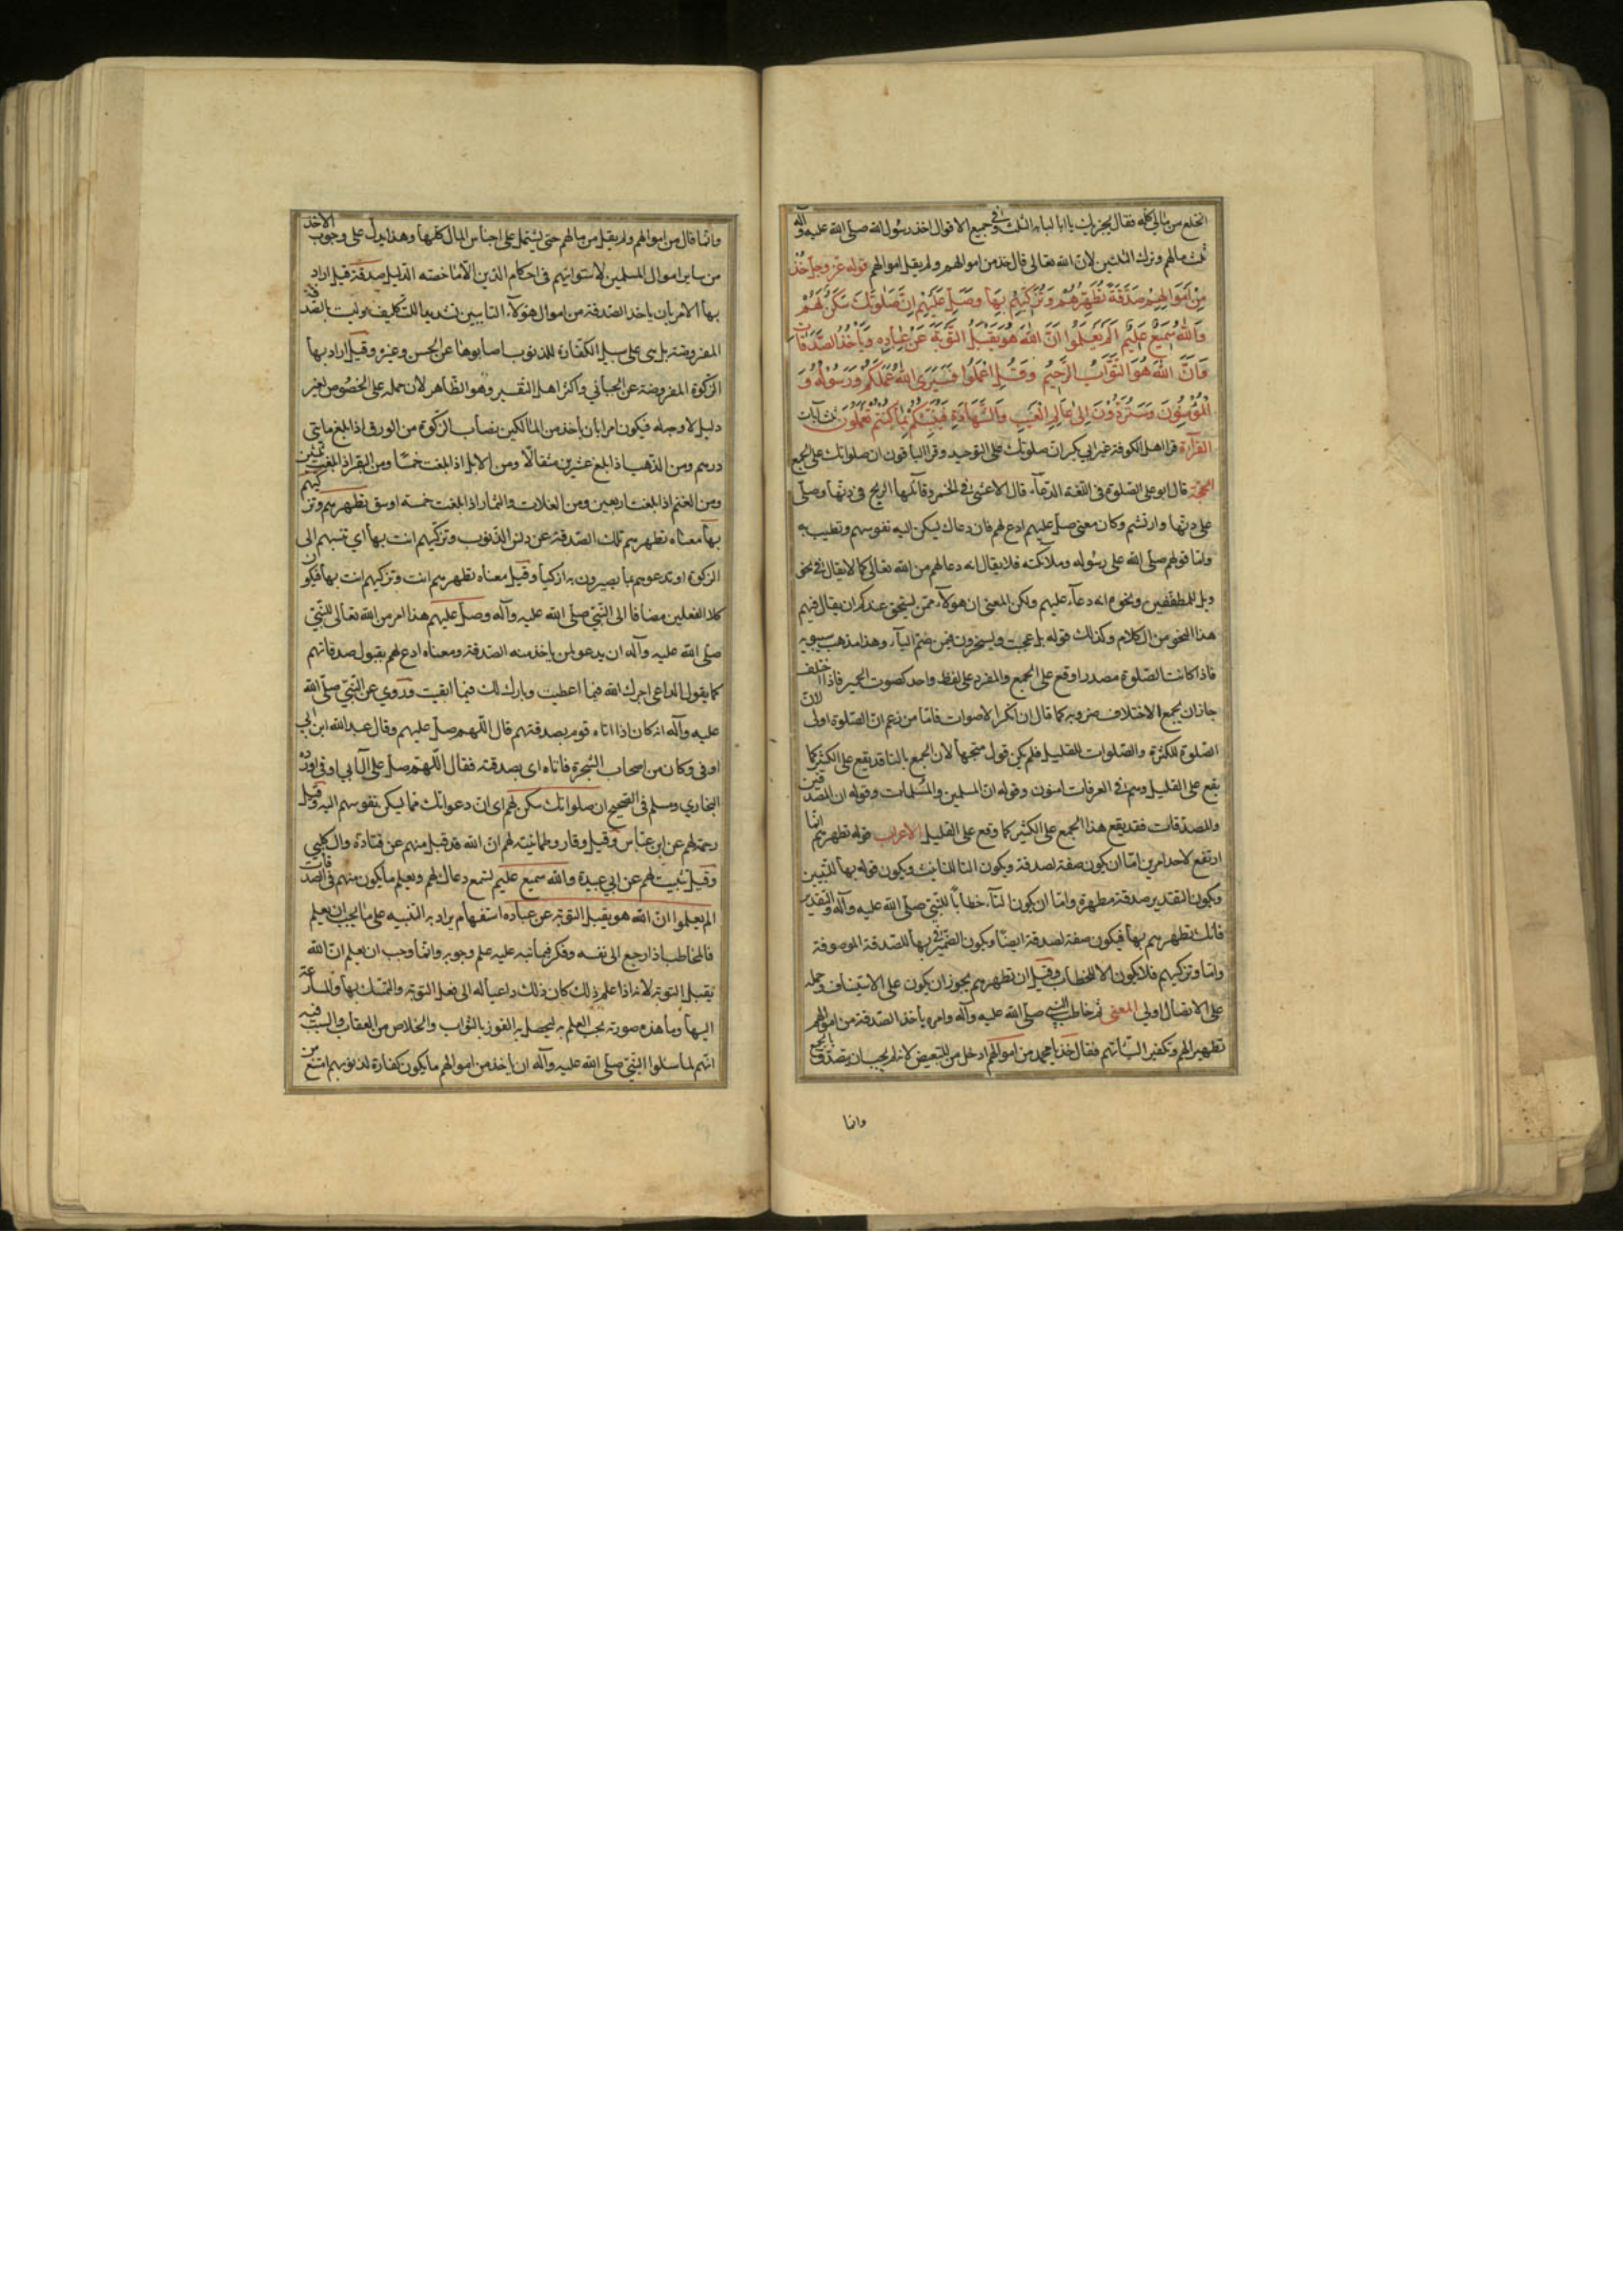 انخلع من مالي كله فقال يجزيك يا ابا لبابه الثلث وفي جميع الاقوال اخذ رسول الله صلى الله عليه وآله
ثلث مالهم وترك الثلثين لان الله تعالى قال خذ من اموالهم ولم يقل اموالهم قوله عز وجل خُذْ
مِنْ اَمْوَالِهِمْ صَدَقَةً تُطَهِّرُهُمْ وَتُزَكِّيهِمْ بِهَا وَصَلِّ عَلَيْهِمْ اِنَّ صَلٰوتَكَ سَكَنٌ لَهُمْ
وَاللهُ سَمِيعٌ عَلِيمٌ اَلَمْ يَعْلَمُوا اَنَّ اللهَ هُوَ يَقْبَلُ التَّوْبَةَ عَنْ عِبَادِهِ وَيَأْخُذُ الصَّدَقَاتِ
وَاَنَّ اللهَ هُوَ التَّوَّابُ الرَّحِيمُ وَقُلِ اعْمَلُوا فَسَيَرَى اللهُ عَمَلَكُمْ وَرَسُولُهُ وَ
الْمُؤْمِنُونَ وَسَتُرَدُّونَ اِلٰى عَالِمِ الْغَيْبِ وَالشَّهَادَةِ فَيُنَبِّئُكُمْ بِمَا كُنْتُمْ تَعْمَلُونَ ثلث آيات
القرآءة قرا اهل الكوفة غير ابي بكر ان صلوتك على التوحيد وقرا الباقون ان صلواتك على الجمع
الحجّة قال ابو علي الصلوة في اللغة الدعاء قال الاعشى في الخمر وقابلها الريح في دنّها وصلّى
على دنّها وارتسم وكان معنى صل عليهم ادع لهم فان دعاك يسكن اليه نفوسهم وتطيب به
واما قولهم صلى الله على رسوله وملائكته فلا يقال انه دعا لهم من الله تعالى كما لا يقال في نحو
ويل للمطففين ونحوه انه دعاء عليهم ولكن المعنى ان هؤلاء ممن يستحق عندكم ان يقال فيهم
هذا النحو من الكلام وكذلك قوله بل عجبت ويسخرون فيمن ضم التاء وهذا مذهب سيبويه
فاذا كانت الصلوة مصدرا وقع على الجميع والمفرد على لفظ واحد كصوت الحمير فاذا اختلف
جاز ان يجمع لاختلاف ضروبه كما قال ان انكر الاصوات فاما من زعم ان الصلوة اولى لان
الصلوة للكثرة والصلوات للقليل فلم يكن قوله متجها لان الجمع بالتا قد يقع على الكثير كما
يقع على القليل وهم في الغرفات امنون وقوله ان المسلمين والمسلمات وقوله ان المصدقين
والمصدقات فقد يقع هذا الجمع على الكثير كما وقع على القليل الاعراب قوله تطهرهم انما
ارتفع لاحد امرين اما ان يكون صفة لصدقة ويكون التا للتانيث ويكون قوله بها للتبيين
ويكون التقدير صدقة مطهرة واما ان يكون التاء خطابا للنبي صلى الله عليه وآله والتقدير
فانك تطهرهم بها فيكون صفة لصدقة ايضا ويكون الضمير في بها للصدقة الموصوفة
واما وتزكيهم فلا يكون الا للخطاب وقيل ان تطهرهم يجوز ان يكون على الاستيناف وحمله
على الاتصال اولى المعنى ثم خاطب النبي صلى الله عليه وآله وامره باخذ الصدقة من اموالهم
تطهيرا لهم وتكفيرا لسيّاتهم فقال خذ يا محمد من اموالهم ادخل من للتبعيض لانه لم يجب ان يتصدق بالجميع
وانما
وانما قال من اموالهم ولم يقل من مالهم حتى يشتمل على اجناس المال كلها وهذا يدل على وجوب الاخذ
من ساير اموال المسلمين لاستوائهم في احكام الدين الا ما خصه الدليل صدقة قيل اراد
بها الامر بان ياخذ الصدقة من اموال هؤلاء التايبين تشديدا للتكليف وليست بالصدقة
المفروضة بل هي على سبيل الكفارة للذنوب اصابوها عن الحسن وغيره وقيل اراد بها
الزكوة المفروضة عن الجبائي واكثر اهل التفسير وهو الظاهر لان حمله على الخصوص بغير
دليل لا وجه له فيكون امرا بان ياخذ من المالكين نصاب الزكوة من الورق اذا بلغ مايتي
درهم ومن الذهب اذا بلغ عشرين مثقالا ومن الابل اذا بلغت خمسا ومن البقر اذا بلغت ثلثين
ومن الغنم اذا بلغت اربعين ومن الغلات والثمار اذا بلغت خمسة اوسق تطهرهم وتزكيهم
بها معناه تطهرهم تلك الصدقة عن دنس الذنوب وتزكيهم انت بها اي تنسبهم الى
الزكوة او تدعوهم بما يصيرون به ازكيا وقيل معناه تطهرهم انت وتزكيهم انت بها فيكون
كلا الفعلين مضافا الى النبي صلى الله عليه وآله وصل عليهم هذا امر من الله تعالى للنبي
صلى الله عليه وآله ان يدعو لمن ياخذ منه الصدقة ومعناه ادع لهم بقبول صدقاتهم
كما يقول الداعي اجرك الله فيما اعطيت وبارك لك فيما ابقيت وروي عن النبي صلى الله
عليه وآله انه كان اذا اتاه قوم بصدقتهم قال اللهم صل عليهم وقال عبد الله ابن ابي
اوفى وكان من اصحاب الشجرة فاتاه ابي بصدقته فقال اللهم صل على آل ابي اوفى اورده
البخاري ومسلم في الصحيح ان صلواتك سكن لهم اي ان دعواتك مما يسكن نفوسهم اليه وقيل
رحمة لهم عن ابن عباس وقيل وقار وطمانينة لهم ان الله قد قبل منهم عن قتادة والكلبي
وقيل تثبيت لهم عن ابي عبيدة والله سميع عليم يسمع دعاك لهم ويعلم ما يكون منهم في الصدقات
الم يعلموا ان الله هو يقبل التوبة عن عباده استفهام يراد به التنبيه على ما يجب ان يعلم
فالمخاطب اذا رجع الى نفسه وفكر فيما نبه عليه علم وجوبه وانما وجب ان يعلم ان الله
يقبل التوبة لانه اذا علم ذلك كان ذلك داعيا له الى فعل التوبة والتمسك بها والمسارعة
اليها وما هذه صورته يجب العلم به ليحصل به الفوز بالثواب والخلاص من العقاب والسبب فيه
انهم لما سئلوا النبي صلى الله عليه وآله ان ياخذ من اموالهم ما يكون كفارة لذنوبهم امتنع من